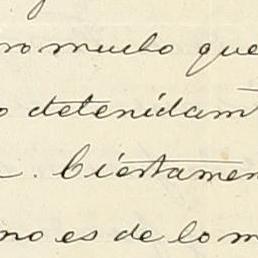 ro mucho que
o detenidam
. Ciertamen
no es de lo m